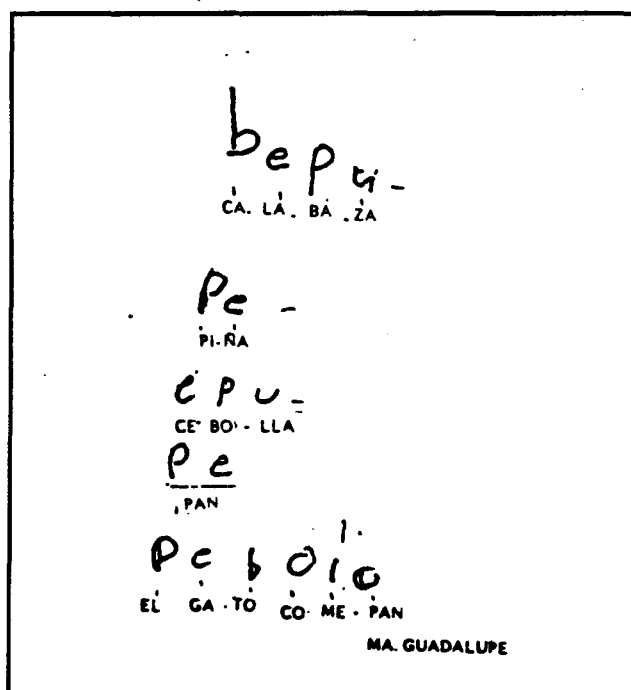 b e p ti -
CA. LA. BA. ZA
Pe -
PI-ÑA
e p u -
CE BO - LLA
P e
PAN
P e b o l o
EL GA - TO CO ME - PAN
MA. GUADALUPE